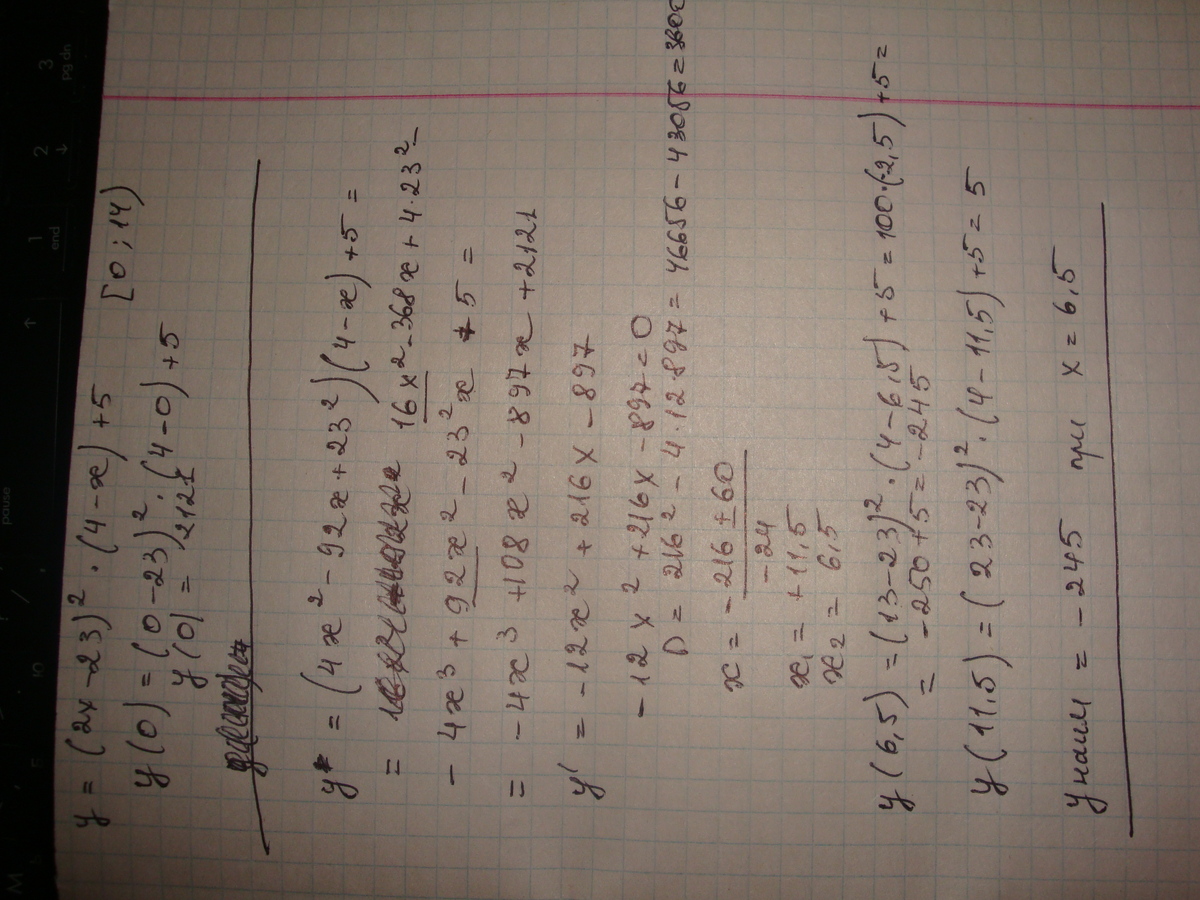 y = (2x - 23)² · (4 - x) + 5 [0 ; 14)
y(0) = (0 - 23)² · (4 - 0) + 5
y(0) = 2121
y = (4x² - 92x + 23²)(4 - x) + 5 =
= 16x² - 368x + 4·23² -
- 4x³ + 92x² - 23²x + 5 =
= - 4x³ + 108x² - 897x + 2121
y' = - 12x² + 216x - 897
- 12x² + 216x - 897 = 0
D = 216² - 4·12·897 = 46656 - 43056 = 3600
x = -216 ± 60
-24
x₁ = + 11,5
x₂ = 6,5
y(6,5) = (13 - 23)² · (4 - 6,5) + 5 = 100·(-2,5) + 5 =
= - 250 + 5 = - 245
y(11,5) = (23 - 23)² · (4 - 11,5) + 5 = 5
y наим = - 245 при x = 6,5
pause
1
end
2
↓
3
pg dn
↑
M